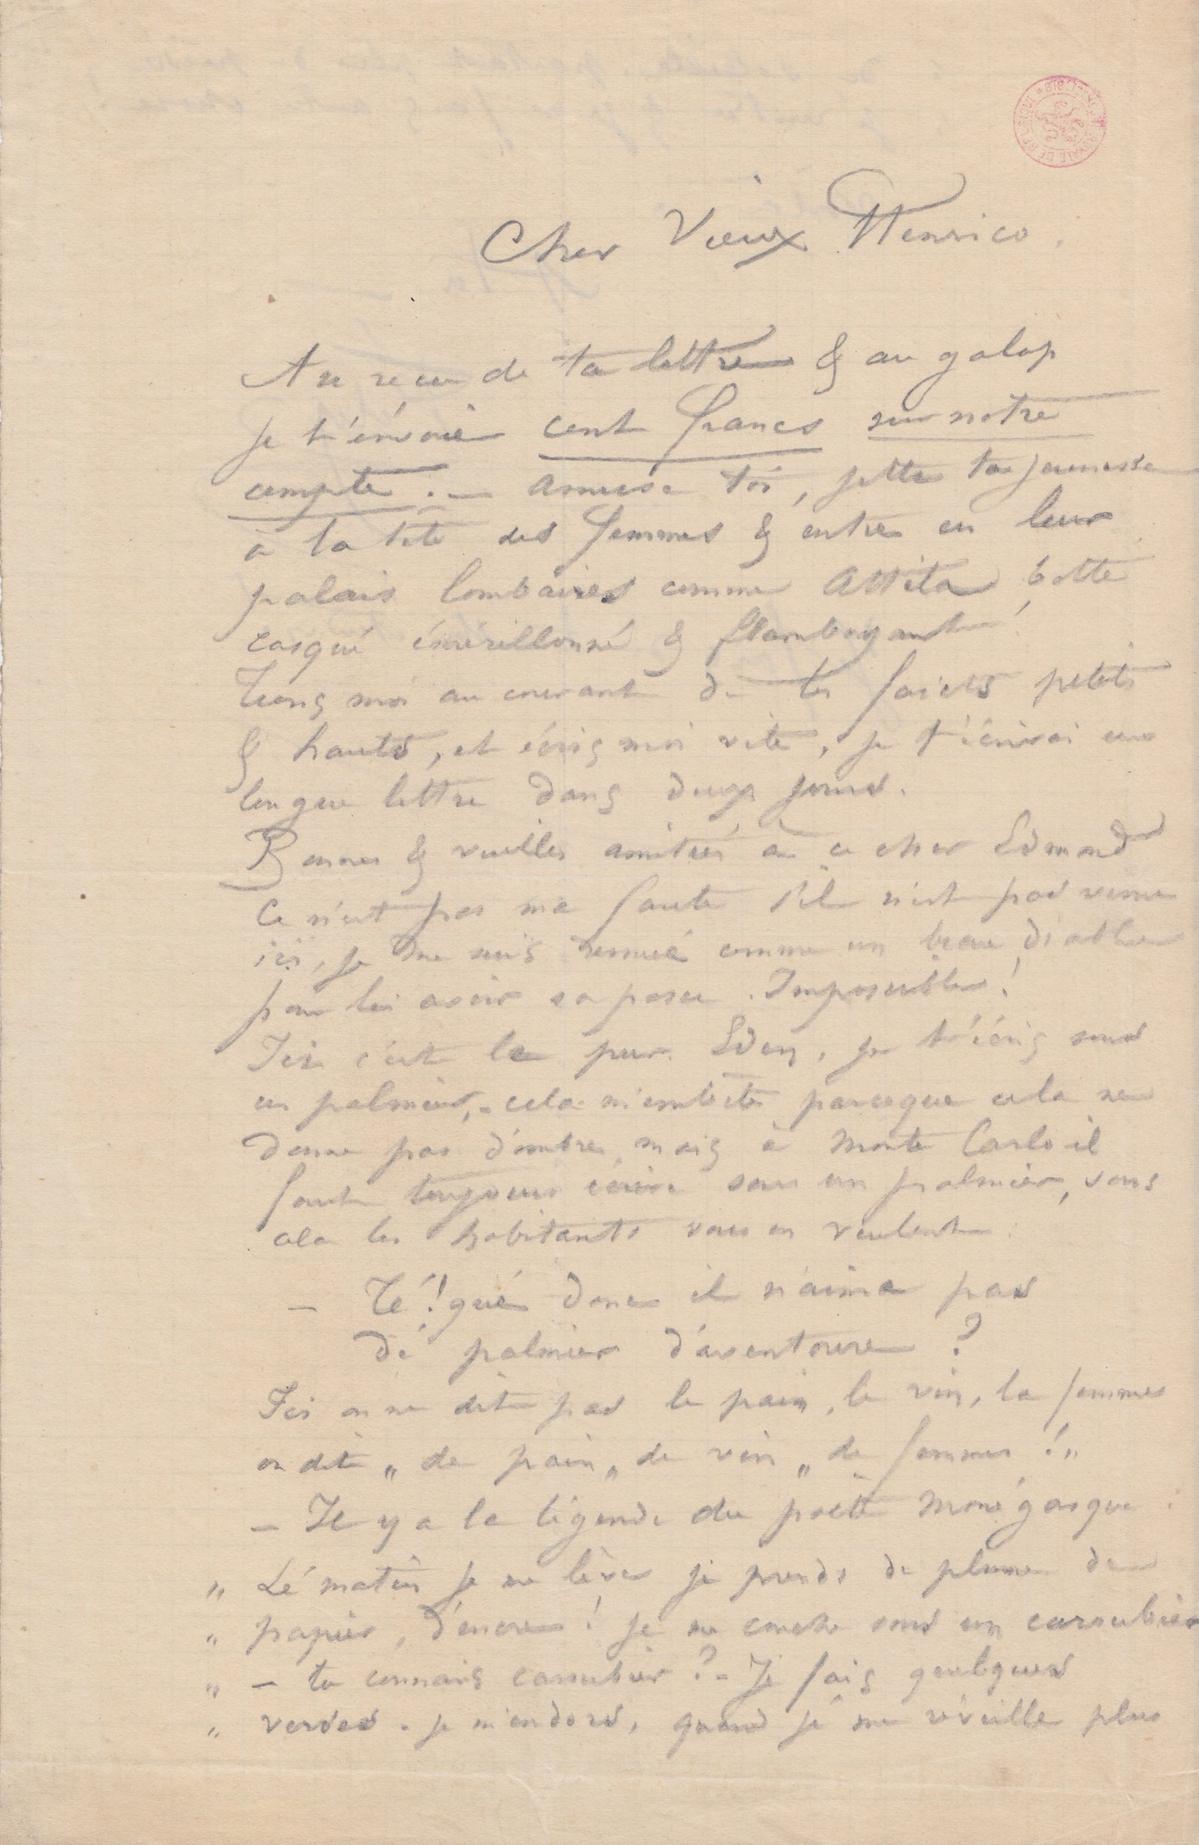 Cher Vieux Henrico.
Au reçu de ta lettre & au galop
je t'envoie cent francs sur notre
compte. — Amuse toi, jette ta jeunesse
à la tête des femmes & entre en leur
palais lombaires comme Attila, botté
casqué émérillonné & flamboyant!
Tiens moi au courant de tes faicts petits
& hauts, et écris moi vite, je t'écrirai une
longue lettre dans deux jours.
Bonnes & vieilles amitiés à ce cher Edmond
Ce n'est pas ma faute s'il n'est pas venu
ici, je me suis remué comme un beau diable
pour lui avoir sa passe. Impossible!
Ici c'est le pur Eden, je t'écris sous
un palmier, - cela m'embête parceque cela ne
donne pas d'ombre, mais à Monte Carlo il
faut toujours écrire sous un palmier, sans
cela les habitants vous en veulent:
— Té! qué donc il n'aime pas
dé palmier d'aventoure?
Ici on ne dit pas le pain, le vin, la femme
on dit „ de pain „ de vin „ de femmes!„
— Il y a la légende du poète monégasque:
„ Lé matin je me lève je prends de plume de
„ papier, d'encre! je me couche sous un caroubier
„ — tu connais caroubier? - Je fais quelques
„ verses - je m'endors, quand jé me réveille plus